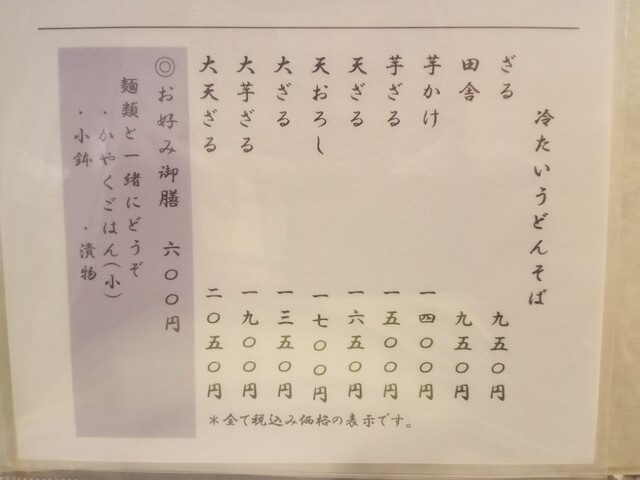 冷たいうどんそば
ざる 九五〇円
田舎 九五〇円
芋かけ 一四〇〇円
芋ざる 一五〇〇円
天ざる 一六五〇円
天おろし 一七〇〇円
大ざる 一三五〇円
大芋ざる 一九〇〇円
大天ざる 二〇五〇円
＊全て税込み価格の表示です。
◎お好み御膳 六〇〇円
麺類と一緒にどうぞ
・かやくごはん(小)
・小鉢 ・漬物